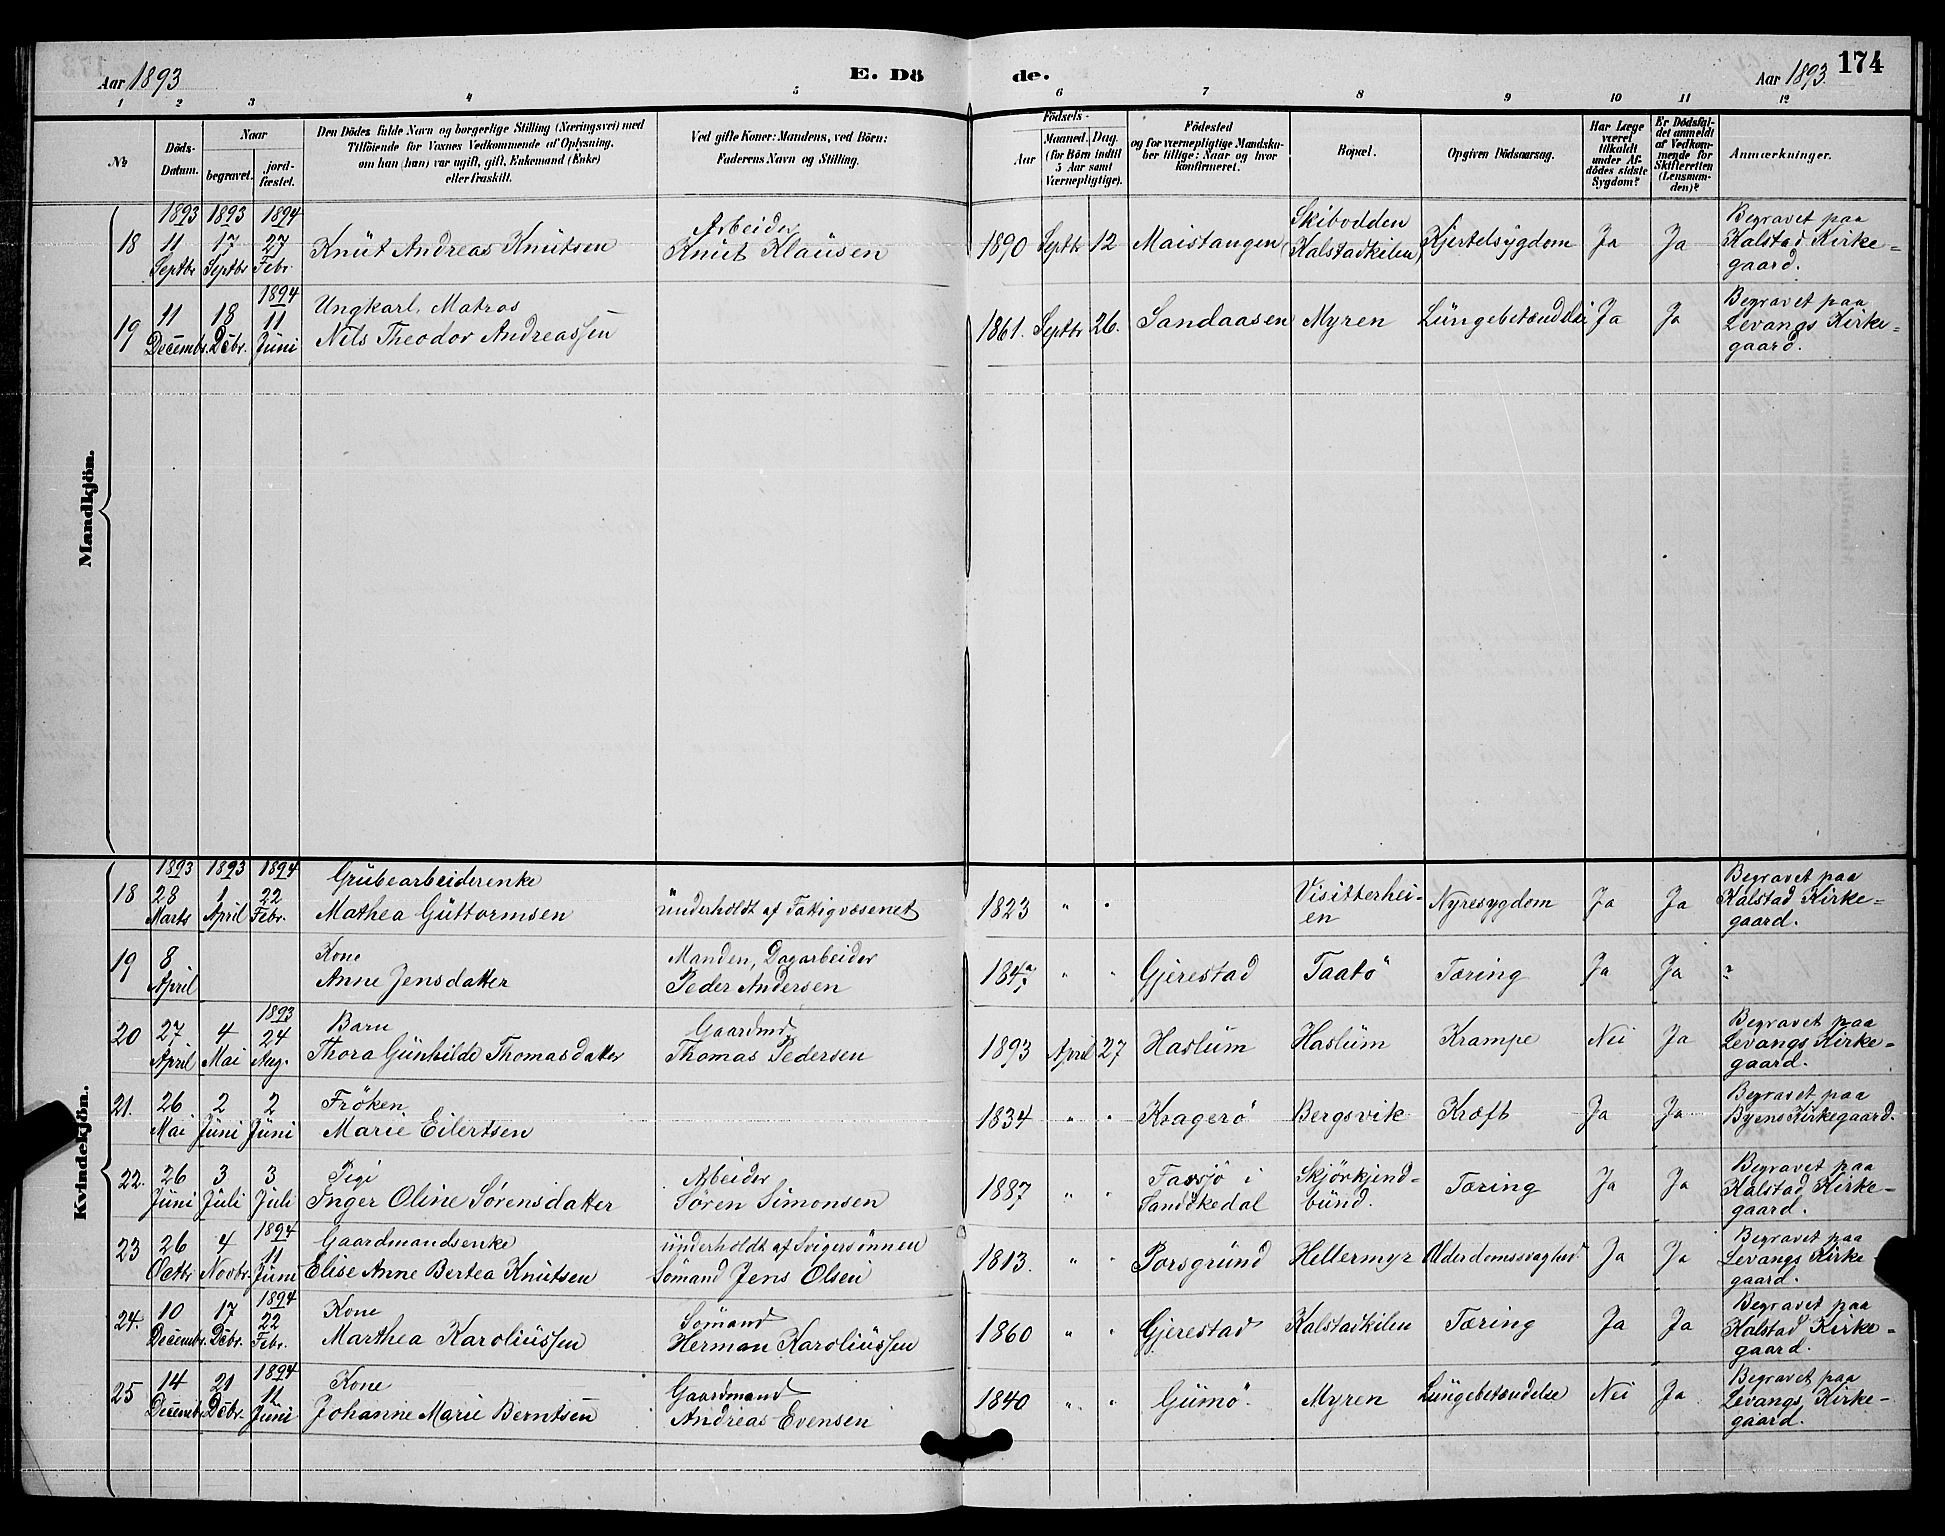 Aar 1893 E. Dö de. Aar 1893. 174
1 2 3 4 5 6 7 8 9 10 11 12
No
Döds-Datum.
Naar
begravet.
jord-fæstet.
Den Dödes fulde Navn og borgerlige Stilling (Næringsvei) med
Tilföiende for Voxnes Vedkommende af Oplysning,
om han (hun) var ugift, gift, Enkemand (Enke)
eller fraskilt.
Ved gifte Koner: Mandens, ved Börn:
Faderens Navn og Stilling.
Födsels-
Aar
Maaned. Dag.
(for Börn indtil
5 Aar samt
Værnepligtige).
Födested
og for værnepligtige Mandska-
ber tillige: Naar og hvor
konfirmeret.
Bopæl.
Opgiven Dödsaarsag.
Har Læge
været
tilkaldt
under Af-
dödes sidste
Sygdom?
Er Dödsfal-
det anmeldt
af Vedkom-
mende for
Skifteretten
(Lensman-
den)?
Anmærkninger.
Mandkjön.
1893 1893 1894
18 11 Septbr 17 Septbr 27 Febr. Knut Andreas Knutsen Arbeider Knut Klausen 1890 Septbr 12 Maistangen Skibodden (Kalstadkilen) Kjertelsygdom Ja Ja Begravet paa Kalstad Kirke=gaard.
19 11 Decembr. 18 Dcbr. 1894 11 Juni Ungkarl, Matros Nils Theodor Andreassen 1861. Septbr 26. Sandaasen Myren Lungebetændelse Ja Ja Begravet paa Levangs Kirke=gaard.
Kvindekjön.
1893 1893 1894
18 28 Marts 1 April 22 Febr. Grubearbeiderenke Mathea Guttormsen underholdt af Fattigvæsenet 1823 " " Visitterhei-en Nyresygdom Ja Ja Begravet paa Kalstad Kirke=gaard.
19 8 April Kone Anne Jensdatter Manden, Dagarbeider Peder Andersen 184? " " Gjerestad Taatö Tæring Ja Ja ?
20 27 April 4 Mai 1893 24 Aug. Barn Thora Gunhilde Thomasdatter Gaardmd Thomas Pedersen 1893 April 27 Haslum Haslum Krampe Nei Ja Begravet paa Levangs Kirke=gaard.
21. 26 Mai 2 Juni 2 Juni Fröken Marie Eilertsen 1834 " " Kragerö Bergsvik Kræft Ja Ja Begravet paa Byens Kirkegaard.
22. 26 Juni 3 Juli 3 Juli Pigi Inger Oline Sörensdatter Arbeider Sören Simonsen 1887 " " i Sandökedal Skjörkjend-bund. Tæring Ja Ja Begravet paa Kalstad Kirke=gaard.
23 26 Octbr 4 Novbr. 1894 11 Juni Gaardmandsenke Elise Anne Bertea Knutsen underholdt af Svigersönnen Sömand Jens Olsen 1813. " " Porsgrund Hellermyr Alderdomssvaghed Ja Ja Begravet paa Levangs Kirke gaard.
24. 10 Decembr. 17 Dcbr. 1894 22 Febr. Kone Marthea Karoliussen Sömand Herman Karoliussen 1860 " " Gjerestad Kalstadkilen Tæring Ja Ja Begravet paa Kalstad Kirke=gaard.
25 14 Decembr 21 Dcbr. 1894 11 Juni Kone Johanne Marie Berntsen Gaardmand Andreas Evensen 1840 " " Gumö. Myren Lungebetændelse Nei Ja Begravet paa Levangs Kirke=gaard.